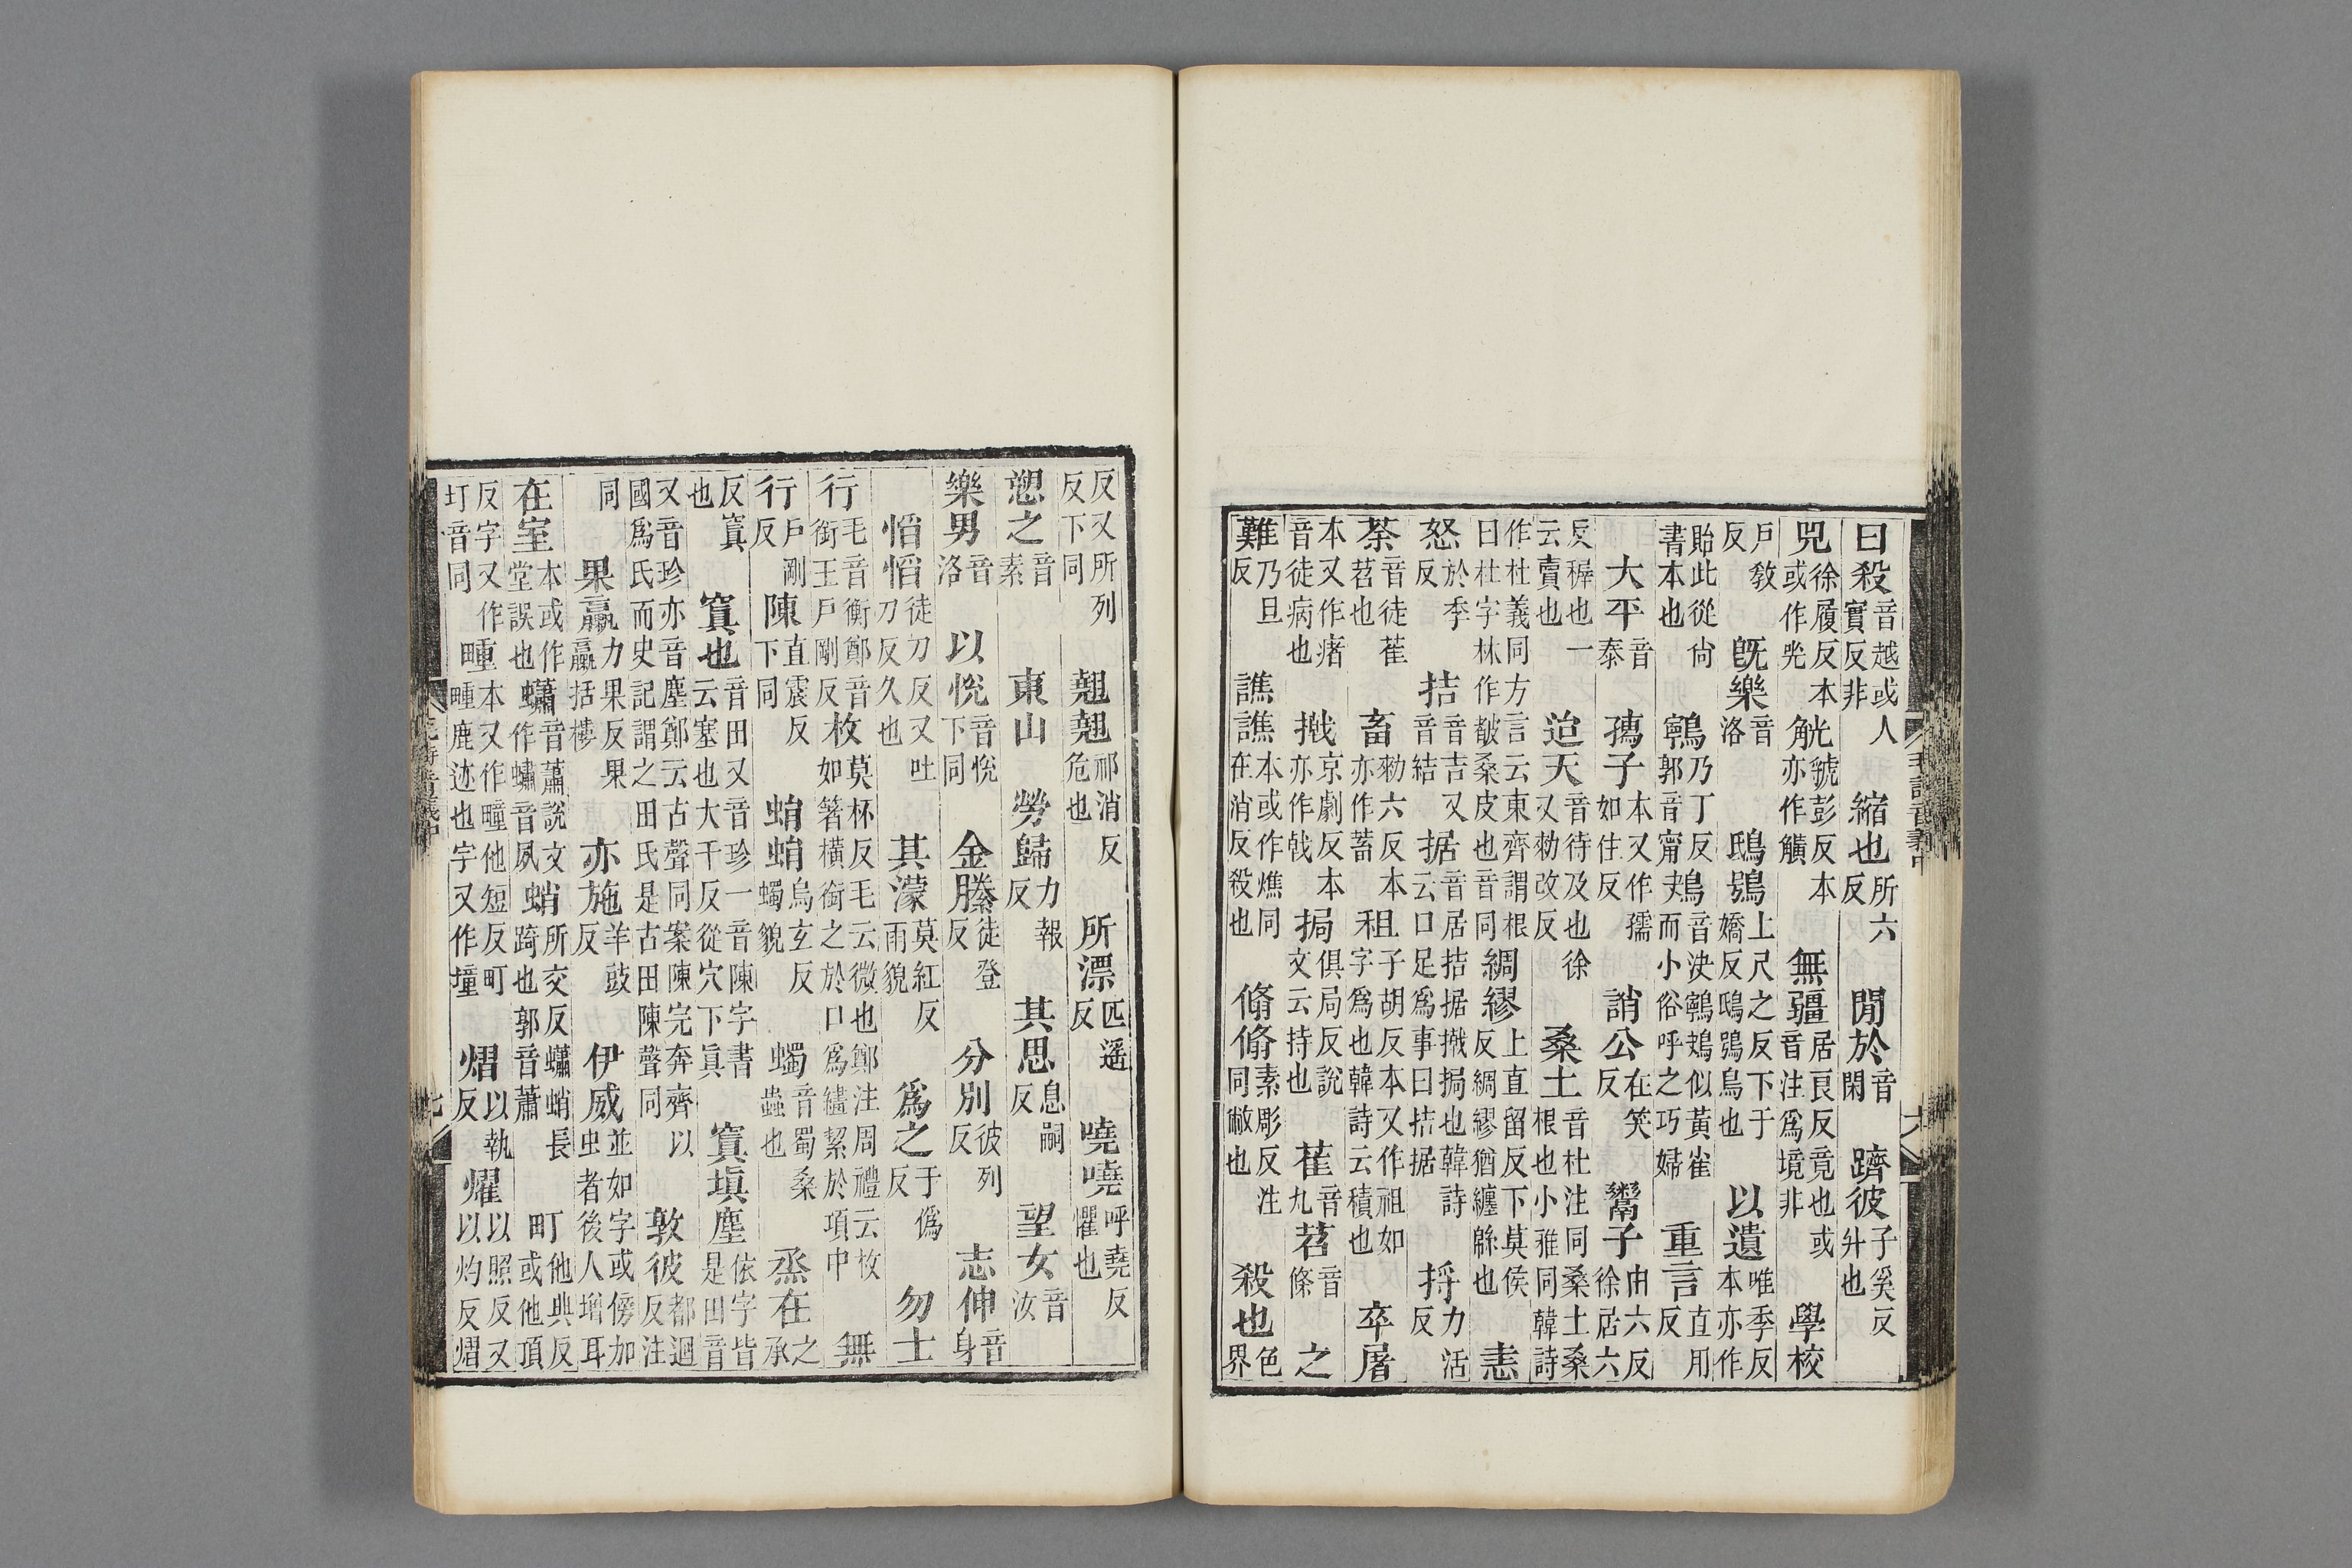 曰殺音越或人實反非縮也所六反閒於音閑躋彼子奚反升也
兕徐履反本或作兕觥虢彭反本亦作觵無疆居良反竟也或音注爲境非學校
戶敎反旣樂音洛鴟鴞上尺之反下于嬌反鴟鴞鳥也以遺唯季反本亦作
貽此從尙書本也鸋乃丁反郭音甯鴂音決鸋鴂似黃雀而小俗呼之巧婦重言直用反
大平音泰子本又作孺如住反誚公在笑反鬻子由六反徐居六
反稺也一云賣也迨天音待及也徐又勑改反桑土音杜注同桑土桑根也小雅同韓詩
作杜義同方言云東齊謂根曰杜字林作桑皮也音同綢繆上直留反下莫侯反綢繆猶纏緜也恚
怒於季反拮音吉又音結据音居拮据撠挶也韓詩云口足爲事曰拮据捋力活反
荼音徒萑苕也畜勑六反本亦作蓄租子胡反本又作祖如字爲也韓詩云積也卒屠
本又作瘏音徒病也撠京劇反本亦作戟挶俱局反說文云持也萑音九苕音條之
難乃旦反譙譙本或作燋同在消反殺也翛翛素彫反注同敝也殺也色界
毛詩音義中 六
反又所列反下同翹翹祁消反危也所漂匹遙反嘵嘵呼堯反懼也
愬之音素東山勞歸力報反其思息嗣反望女音汝
樂男音洛以悅音悅下同金縢徒登反分別彼列反志伸音身
慆慆徒刀反又吐刀反久也其濛莫紅反雨貌爲之于僞反勿士
行毛音衡鄭音銜王戶剛反枚莫杯反毛云微也鄭注周禮云枚如箸橫銜之於口爲繣絜於項中無
行戶剛反陳直震反下同蜎蜎烏玄反蠋貌蠋音蜀桑蟲也烝在之承
反窴也窴也音田又音珍一音陳字書云塞也大千反從穴下眞窴塡塵依字皆是田音
又音珍亦音塵鄭云古聲同案陳完奔齊以國爲氏而史記謂之田氏是古田陳聲同敦彼都迴反注
同果臝力果反果臝括樓亦施羊豉反伊威並如字或傍加虫者後人增耳
在室本或作堂誤也蠨音蕭說文作蟰音夙蛸所交反蠨蛸長踦也郭音蕭町他典反或他頂
反字又作圢音同畽本又作疃他短反町畽鹿迹也字又作墥熠以執反燿以照反又以灼反熠
毛詩音義中 七